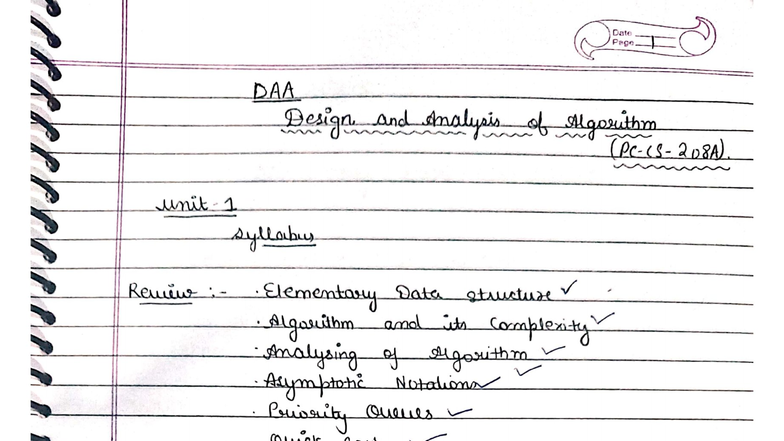 Date
Page 1
DAA
Design and Analysis of Algorithm
(PC-CS-208A).
Unit-1
Syllabus
Review :- · Elementary Data structure ✓
· Algorithm and its Complexity ✓
· Analysing of Algorithm ✓
· Asymptotic Notations ✓
· Priority Queues ✓